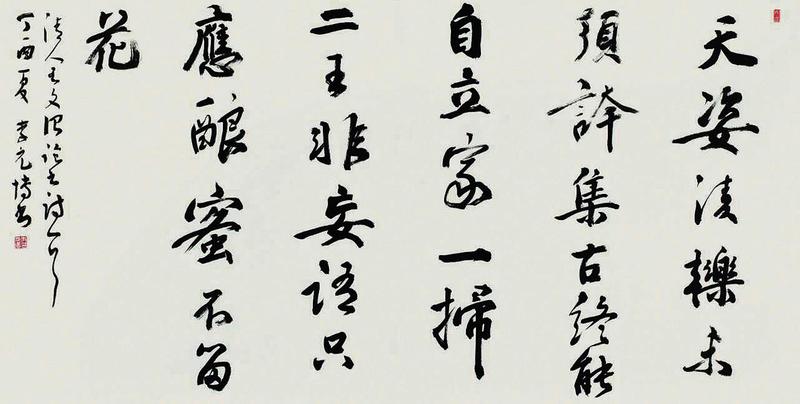 天姿淩轢未
須誇集古終能
自立家一掃
二王非妄語只
應酿蜜不留
花
清人王文治論書詩一首
丁酉夏 李元博書